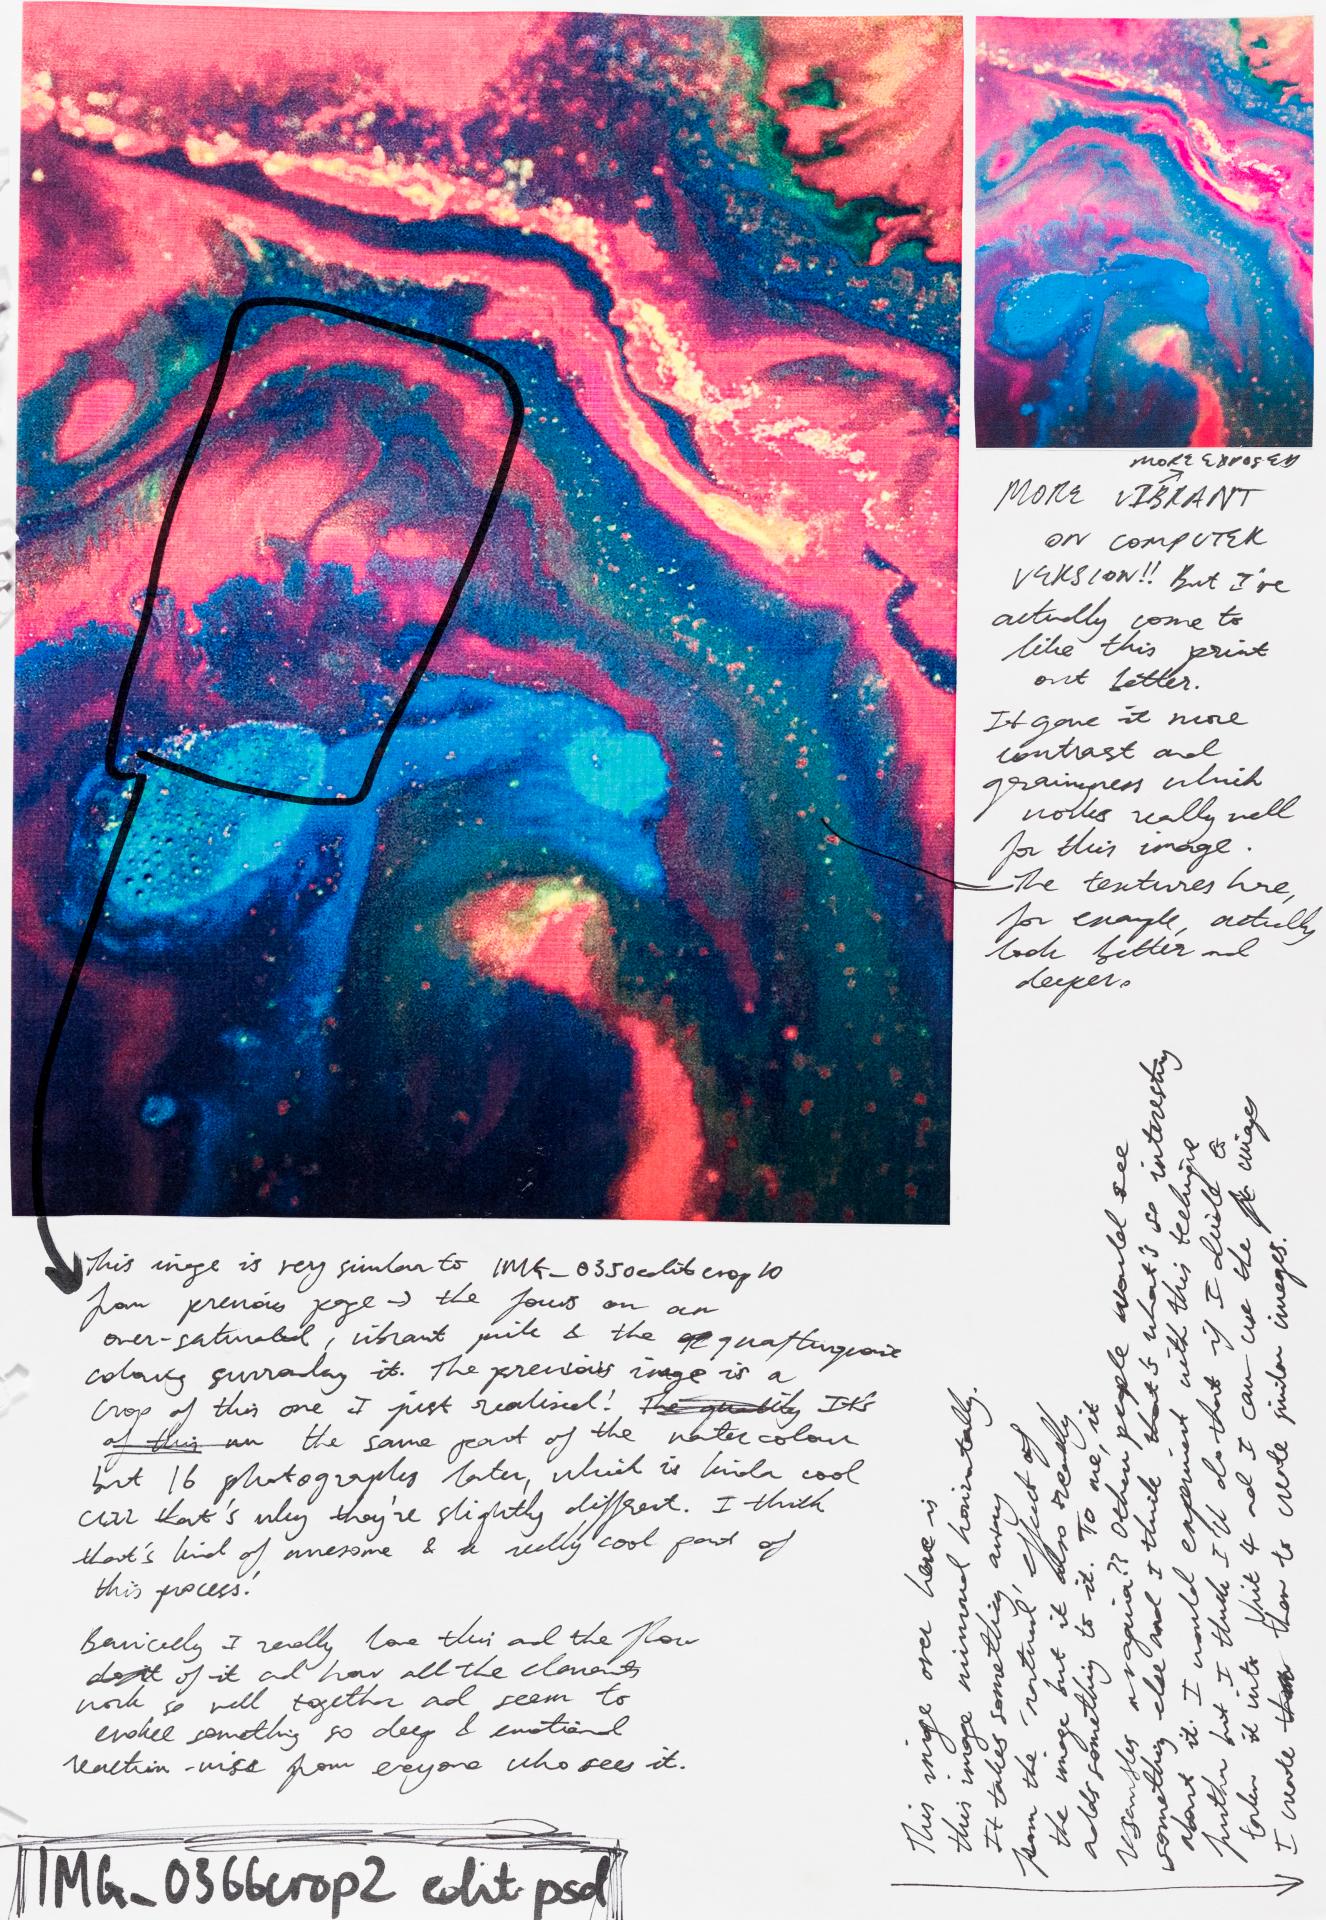 MORE EXPOSED
MORE VIBRANT
ON COMPUTER
VERSION!! But I've
actually come to
like this print
out better.
It gave it more
contrast and
graininess which
works really well
for this image.
The textures here,
for example, actually
look better and
deeper.
This image is very similar to IMG_0350editcrop10
from previous page → the focus on an
over-saturated, vibrant pink & the aqua/turquoise
colours surrounding it. The previous image is a
crop of this one I just realised! The quality It's
of this the same part of the watercolour
but 16 photographs later, which is kinda cool
cuz that's why they're slightly different. I think
that's kind of awesome & a really cool part of
this process!
Basically I really love this and the flow
of it and how all the elements
work so well together and seem to
evoke something so deep & emotional
reaction-wise from everyone who sees it.
IMG_0366crop2 edit.psd
This image over here is
this image mirrored horizontally.
It takes something away
from the 'natural' effect of
the image but it also really
adds something to it. To me, it
resembles a vagina?? Other people would see
something else and I think that's what's so interesting
about it. I would experiment with this technique
further but I think I'll do that if I decide to
take it into Unit 4 and I can use the images
I create then to create similar images.